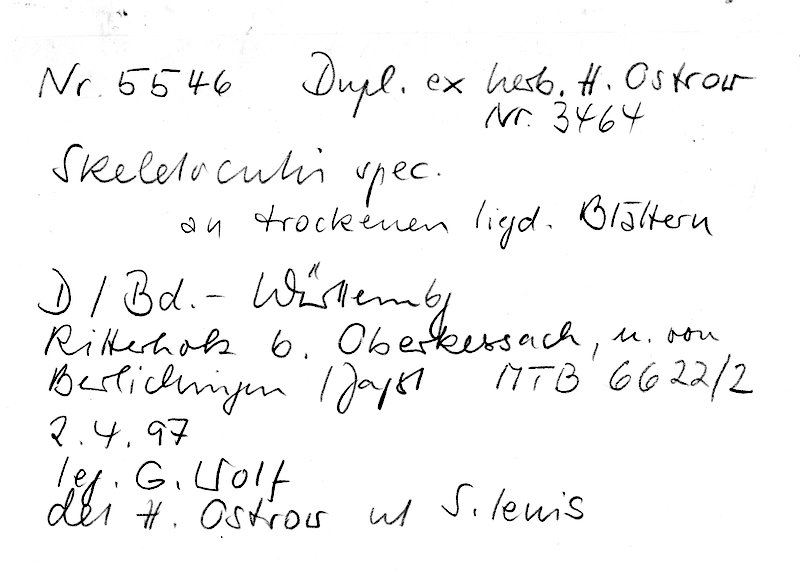 Nr. 5546 Dupl. ex herb. H. Ostrow
Nr. 3464
Skeletocutis spec.
an trockenen ligd. Blättern
D / Bd.- Württembg
Ritterholz b. Oberkessach, n. von
Berlichingen / Jagst MTB 6622/2
2.4.97
leg. G. Wolf
det H. Ostrow S. lenis